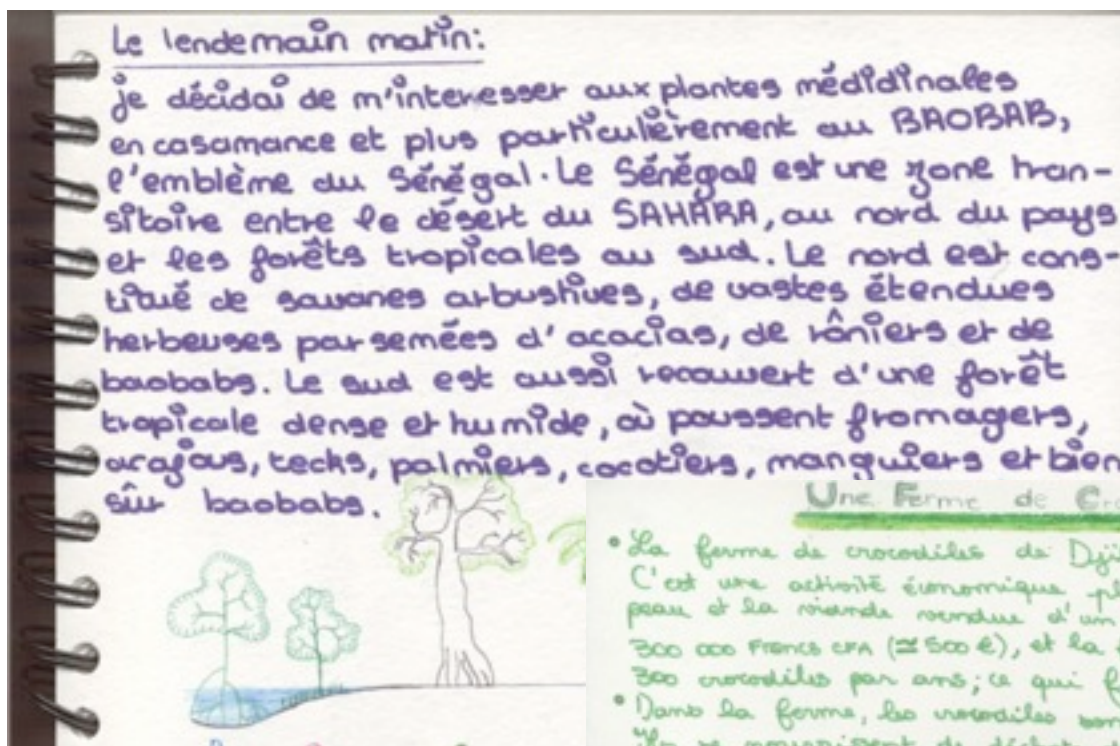 Le lendemain matin:
je décidai de m'interesser aux plantes médidinales
en casamance et plus particulièrement au BAOBAB,
l'emblème du Sénégal. Le Sénégal est une zone tran-
sitoire entre le désert du SAHARA, au nord du pays
et les forêts tropicales au sud. Le nord est cons-
titué de savanes arbustives, de vastes étendues
herbeuses parsemées d'acacias, de rôniers et de
baobabs. Le sud est aussi recouvert d'une forêt
tropicale dense et humide, où poussent fromagers,
acajous, tecks, palmiers, cocotiers, manguiers et bien
sûr baobabs.
Une Ferme de
• La ferme de crocodiles de
C'est une activité économique
peau et la viande vendue d'un
300 000 Francs CFA (≃ 500 €), et la
300 crocodiles par ans; ce qui
• Dans la ferme, les crocodiles